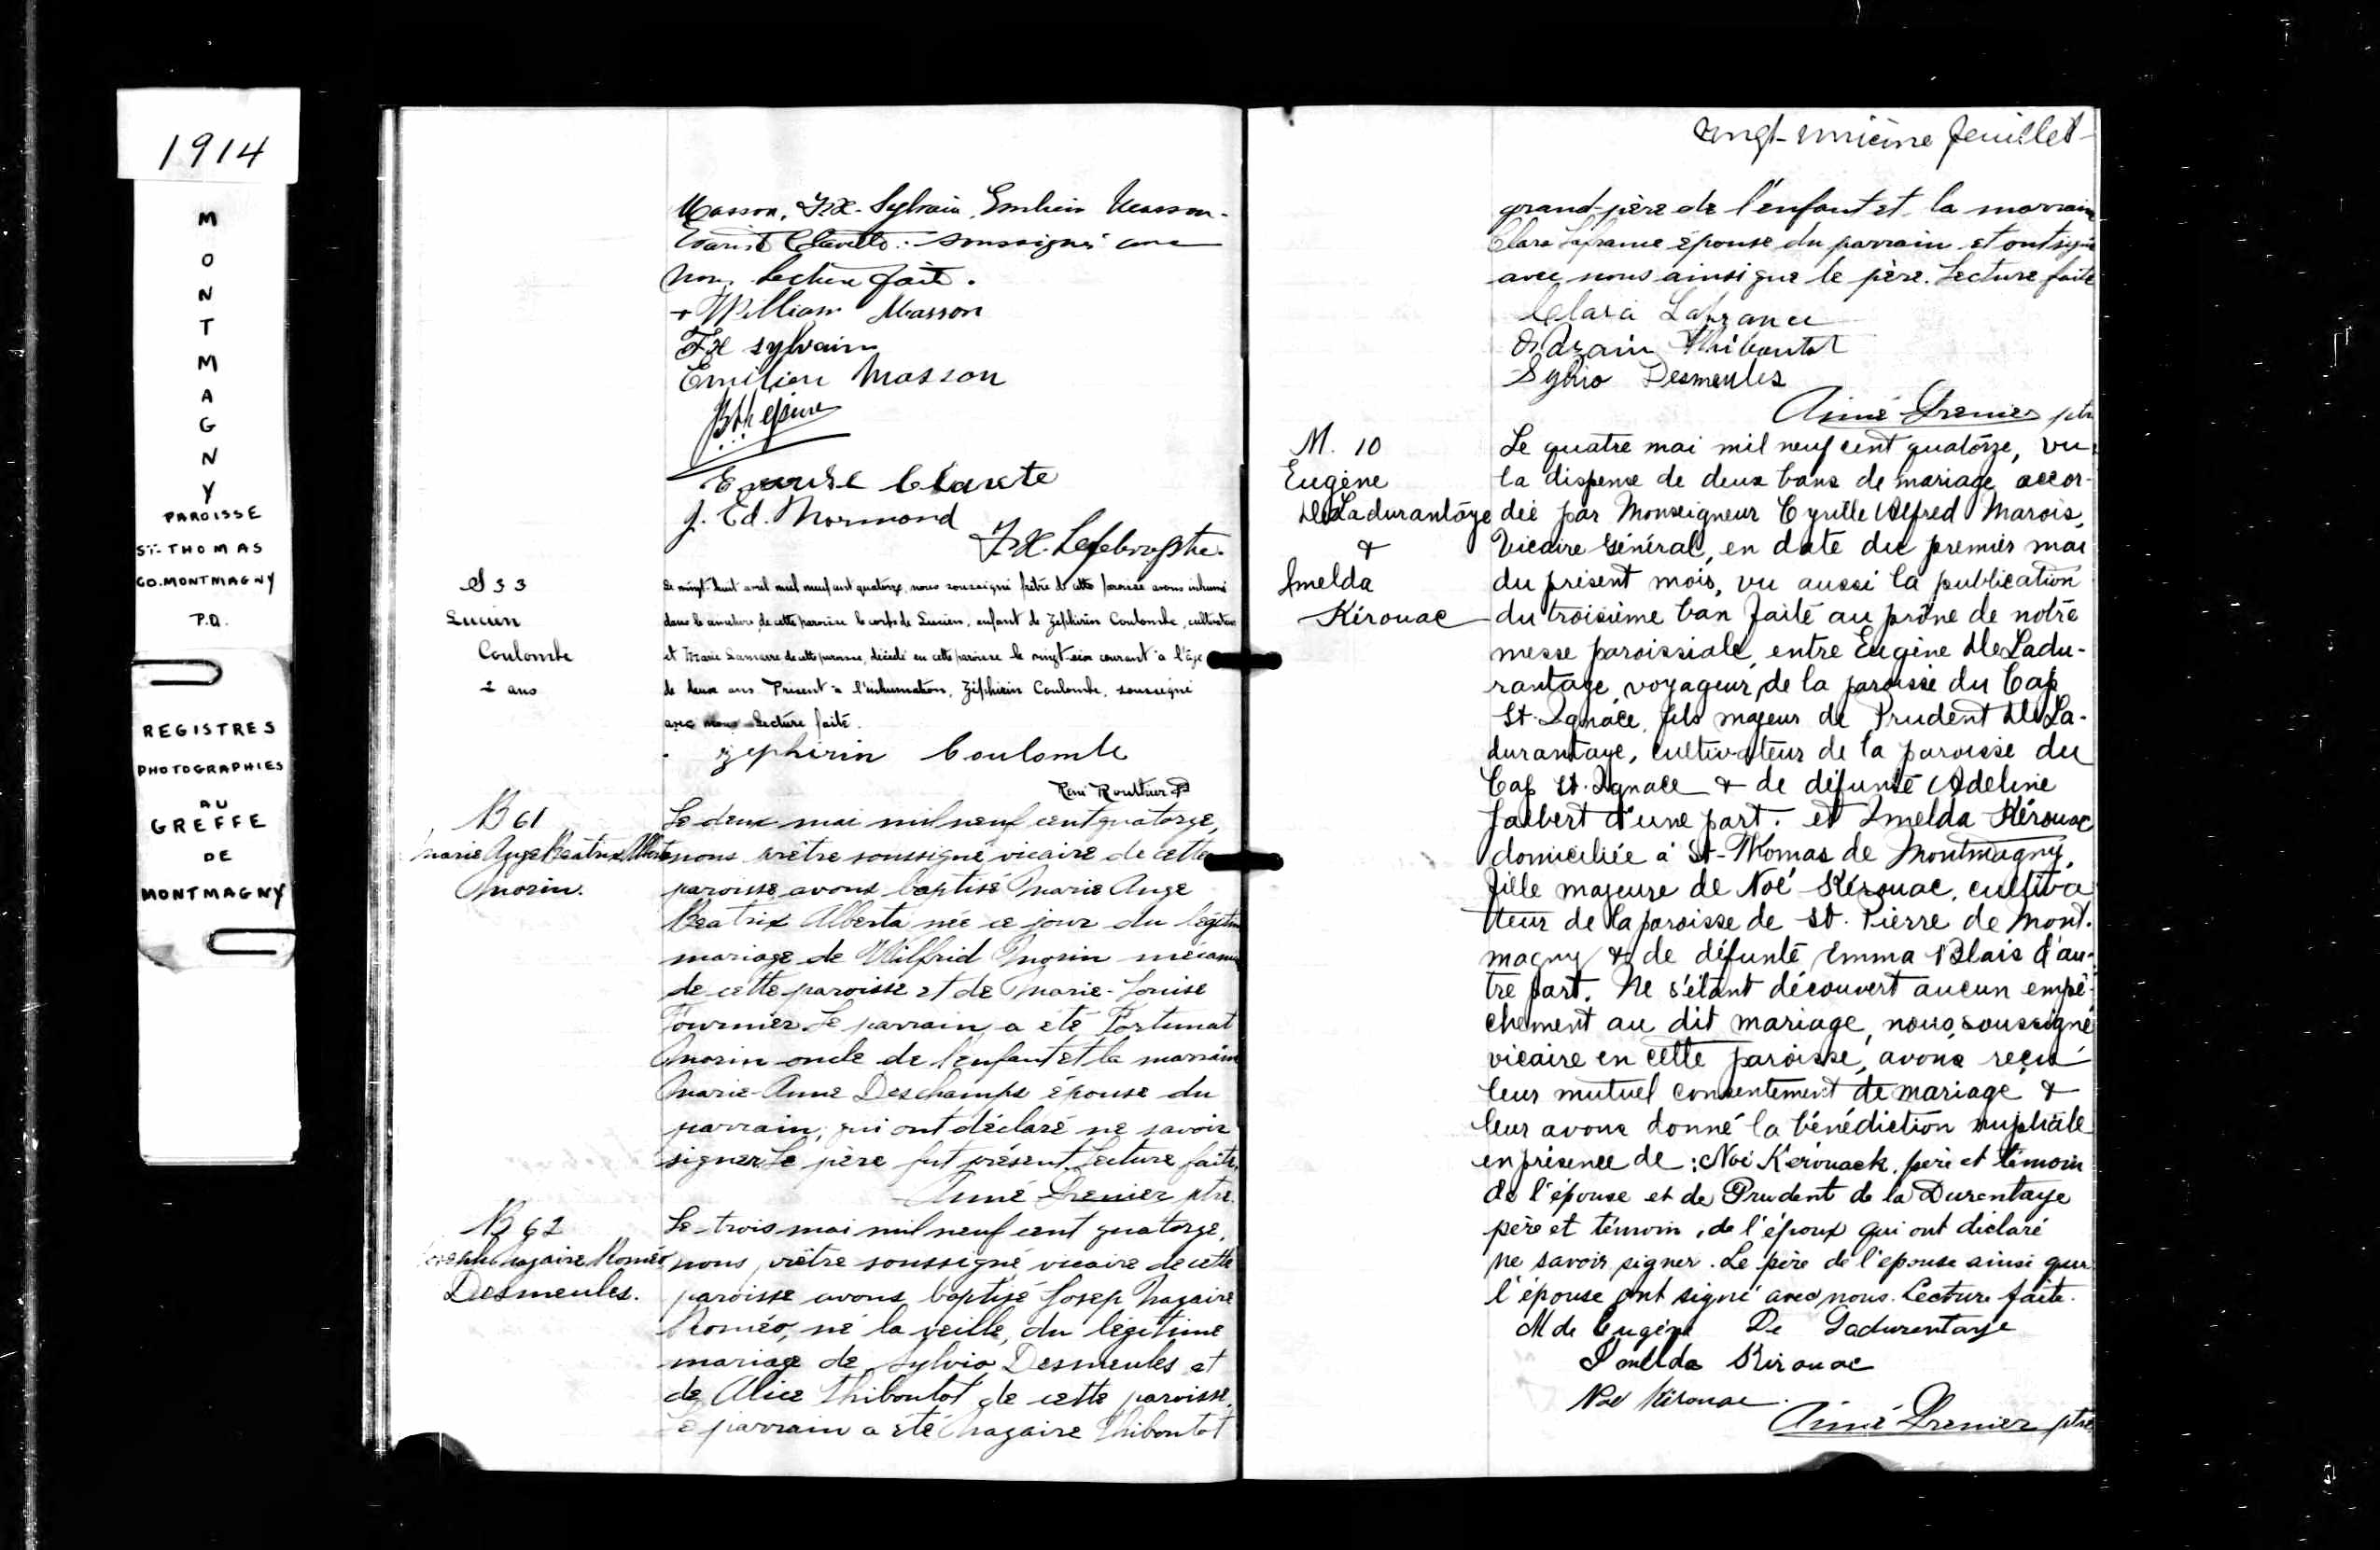 1914
M
O
N
T
M
A
G
N
Y
PAROISSE
ST-THOMAS
CO.MONTMAGNY
P.Q.
REGISTRES
PHOTOGRAPHIES
AU
GREFFE
DE
MONTMAGNY
Masson, F.X. Sylvain, Emilien Masson
soussignés avec
nous. Lecture faite.
+ William Masson
F X Sylvain
Emilien Masson
J. Ed. Normond
F.X.
S 33
Lucien
Coulombe
2 ans
Le vingt-huit avril mil neuf cent quatorze, nous soussigné prêtre de cette paroisse avons inhumé
dans le cimetière de cette paroisse le corps de Lucien, enfant de Zéphirin Coulombe, cultivateur
et Marie Samarre de cette paroisse, décédé en cette paroisse le vingt-six courant à l'âge
de deux ans. Présent à l'inhumation, Zéphirin Coulombe, soussigné
avec nous Lecture faite.
Zephirin Coulombe
René Routhier
B 61
Marie Ange Béatrix Alberta
Morin.
Le deux mai mil neuf cent quatorze,
nous prêtre soussigné vicaire de cette
paroisse avons baptisé Marie Ange
Béatrix Alberta née ce jour du légitime
mariage de Wilfrid Morin
de cette paroisse et de Marie-Louise
Fournier. Le parrain a été Fortunat
Morin oncle de l'enfant et la marraine
Marie-Anne Deschamps épouse du
parrain, qui ont déclaré ne savoir
signer. Le père fut présent. Lecture faite.
Aimé Grenier ptre.
B 62
Nazaire Roméo
Desmeules.
Le trois mai mil neuf cent quatorze,
nous prêtre soussigné vicaire de cette
paroisse avons baptisé Josep Nazaire
Roméo, né la veille, du légitime
mariage de Sylvio Desmeules et
de Alice Thiboutot de cette paroisse.
Le parrain a été Nazaire Thiboutot
vingt-unième feuillet
grand-père de l'enfant et la marraine
Clara Lafrance épouse du parrain et ont signé
avec nous ainsi que le père. Lecture faite
Clara Lafrance
Thiboutot
Sylvio Desmeules
Aimé Grenier ptre
M. 10
Eugène
DeLadurantaye
&
Imelda
Kérouac
Le quatre mai mil neuf cent quatorze, vu
la dispense de deux bans de mariage accor-
dée par Monseigneur Cyrille Alfred Marois,
Vicaire Général, en date du premier mai
du présent mois, vu aussi la publication
du troisième ban faite au prône de notre
messe paroissiale, entre Eugène DeLadu-
rantaye, voyageur, de la paroisse du Cap
St-Ignace, fils majeur de Prudent DeLa-
durantaye, cultivateur de la paroisse du
Cap St. Ignace & de défunte Adeline
Jalbert d'une part. et Imelda Kérouac
domiciliée à St-Thomas de Montmagny,
fille majeure de Noé Kérouac, cultiva
teur de la paroisse de St. Pierre de Mont.
magny & de défunte Emma Blais d'au-
tre part. Ne s'étant découvert aucun empê-
chement au dit mariage, nous, soussigné
vicaire en cette paroisse, avons reçu
leur mutuel consentement de mariage &
leur avons donné la bénédiction nuptiale
en présence de : Noé Kerouack, père et témoin
de l'épouse et de Prudent de la Durentaye
père et témoin, de l'époux qui ont déclaré
ne savoir signer. Le père de l'epouse ainsi que
l'épouse ont signé avec nous. Lecture faite.
M de Eugène De Ladurentaye
Imelda Kirouac
Noé Kirouac
Aimé Grenier ptre